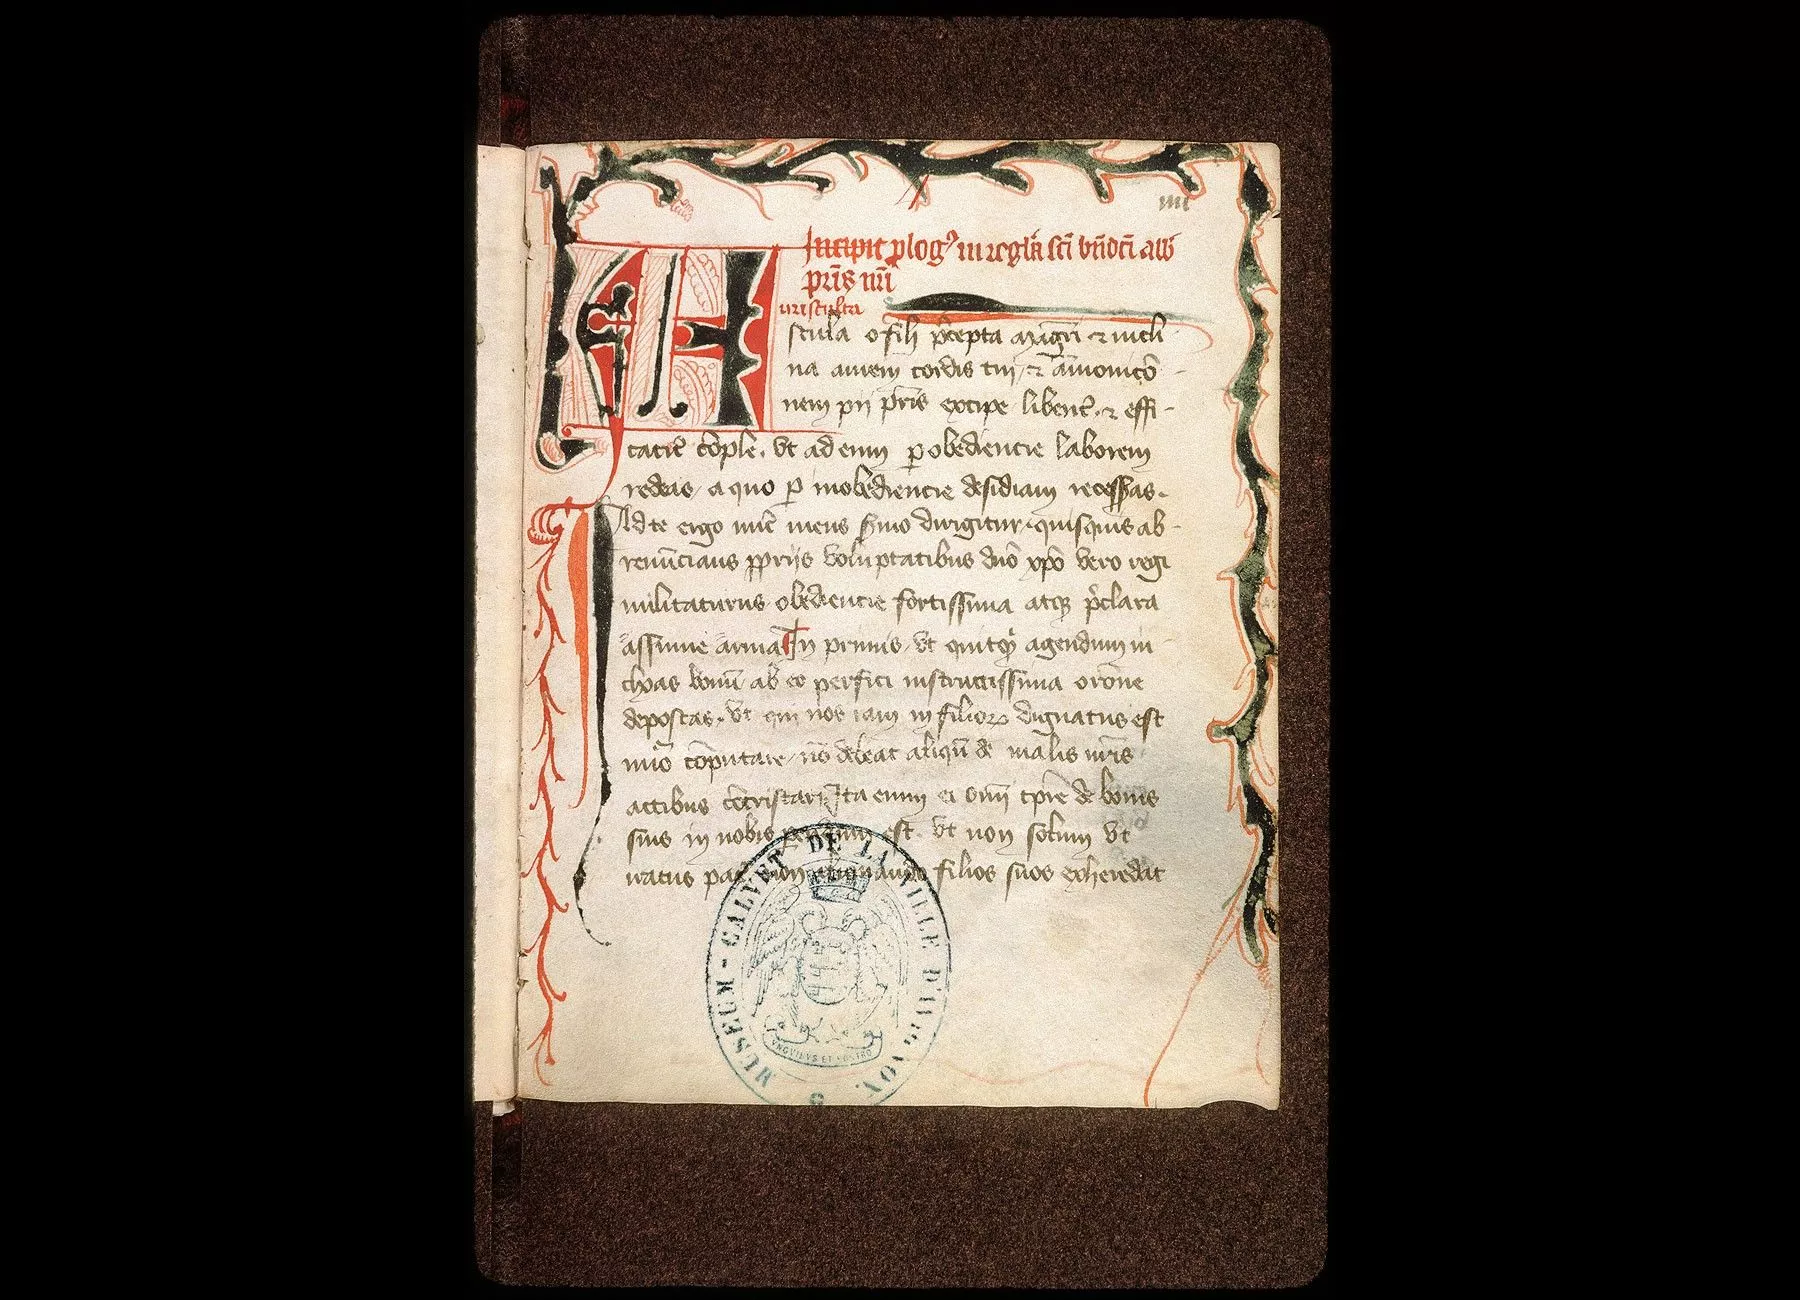 IIII
Incipit plog9 in regla sci bndci abb
pris nri
urisculta
sculta o fili pcepta magri ⁊ incli
na aurem cordis tui, ⁊ amonicō
nem pii pris excipe libent, ⁊ effi
cacit cōple. Vt ad eum p obediencie laborem
redeas, a quo p inobediencie desidiam recesseras.
Ad te ergo nūc meus smo dirigitur, quisquis ab
renūcians ppriis voluptatibus dno xpo vero regi
militaturus, obediencie fortissima atqꝫ pclara
assume arma In primis, vt quitqd agendum in
choas bonū ab eo perfici instructissima orone
deposcas. Vt qui nos iam in filioꝝ dignatus est
nūo cōputare, nō debeat aliqn de malis nris
actibus cōtristari Ita enim ei omi tpre de bonis
suis in nobis est. Vt non solum vt
iratus pat non aliquando filios suos exheredat
MUSEUM - CALVET DE LA VILLE D'AVIGNON.
UNGUIBUS ET ROSTRO